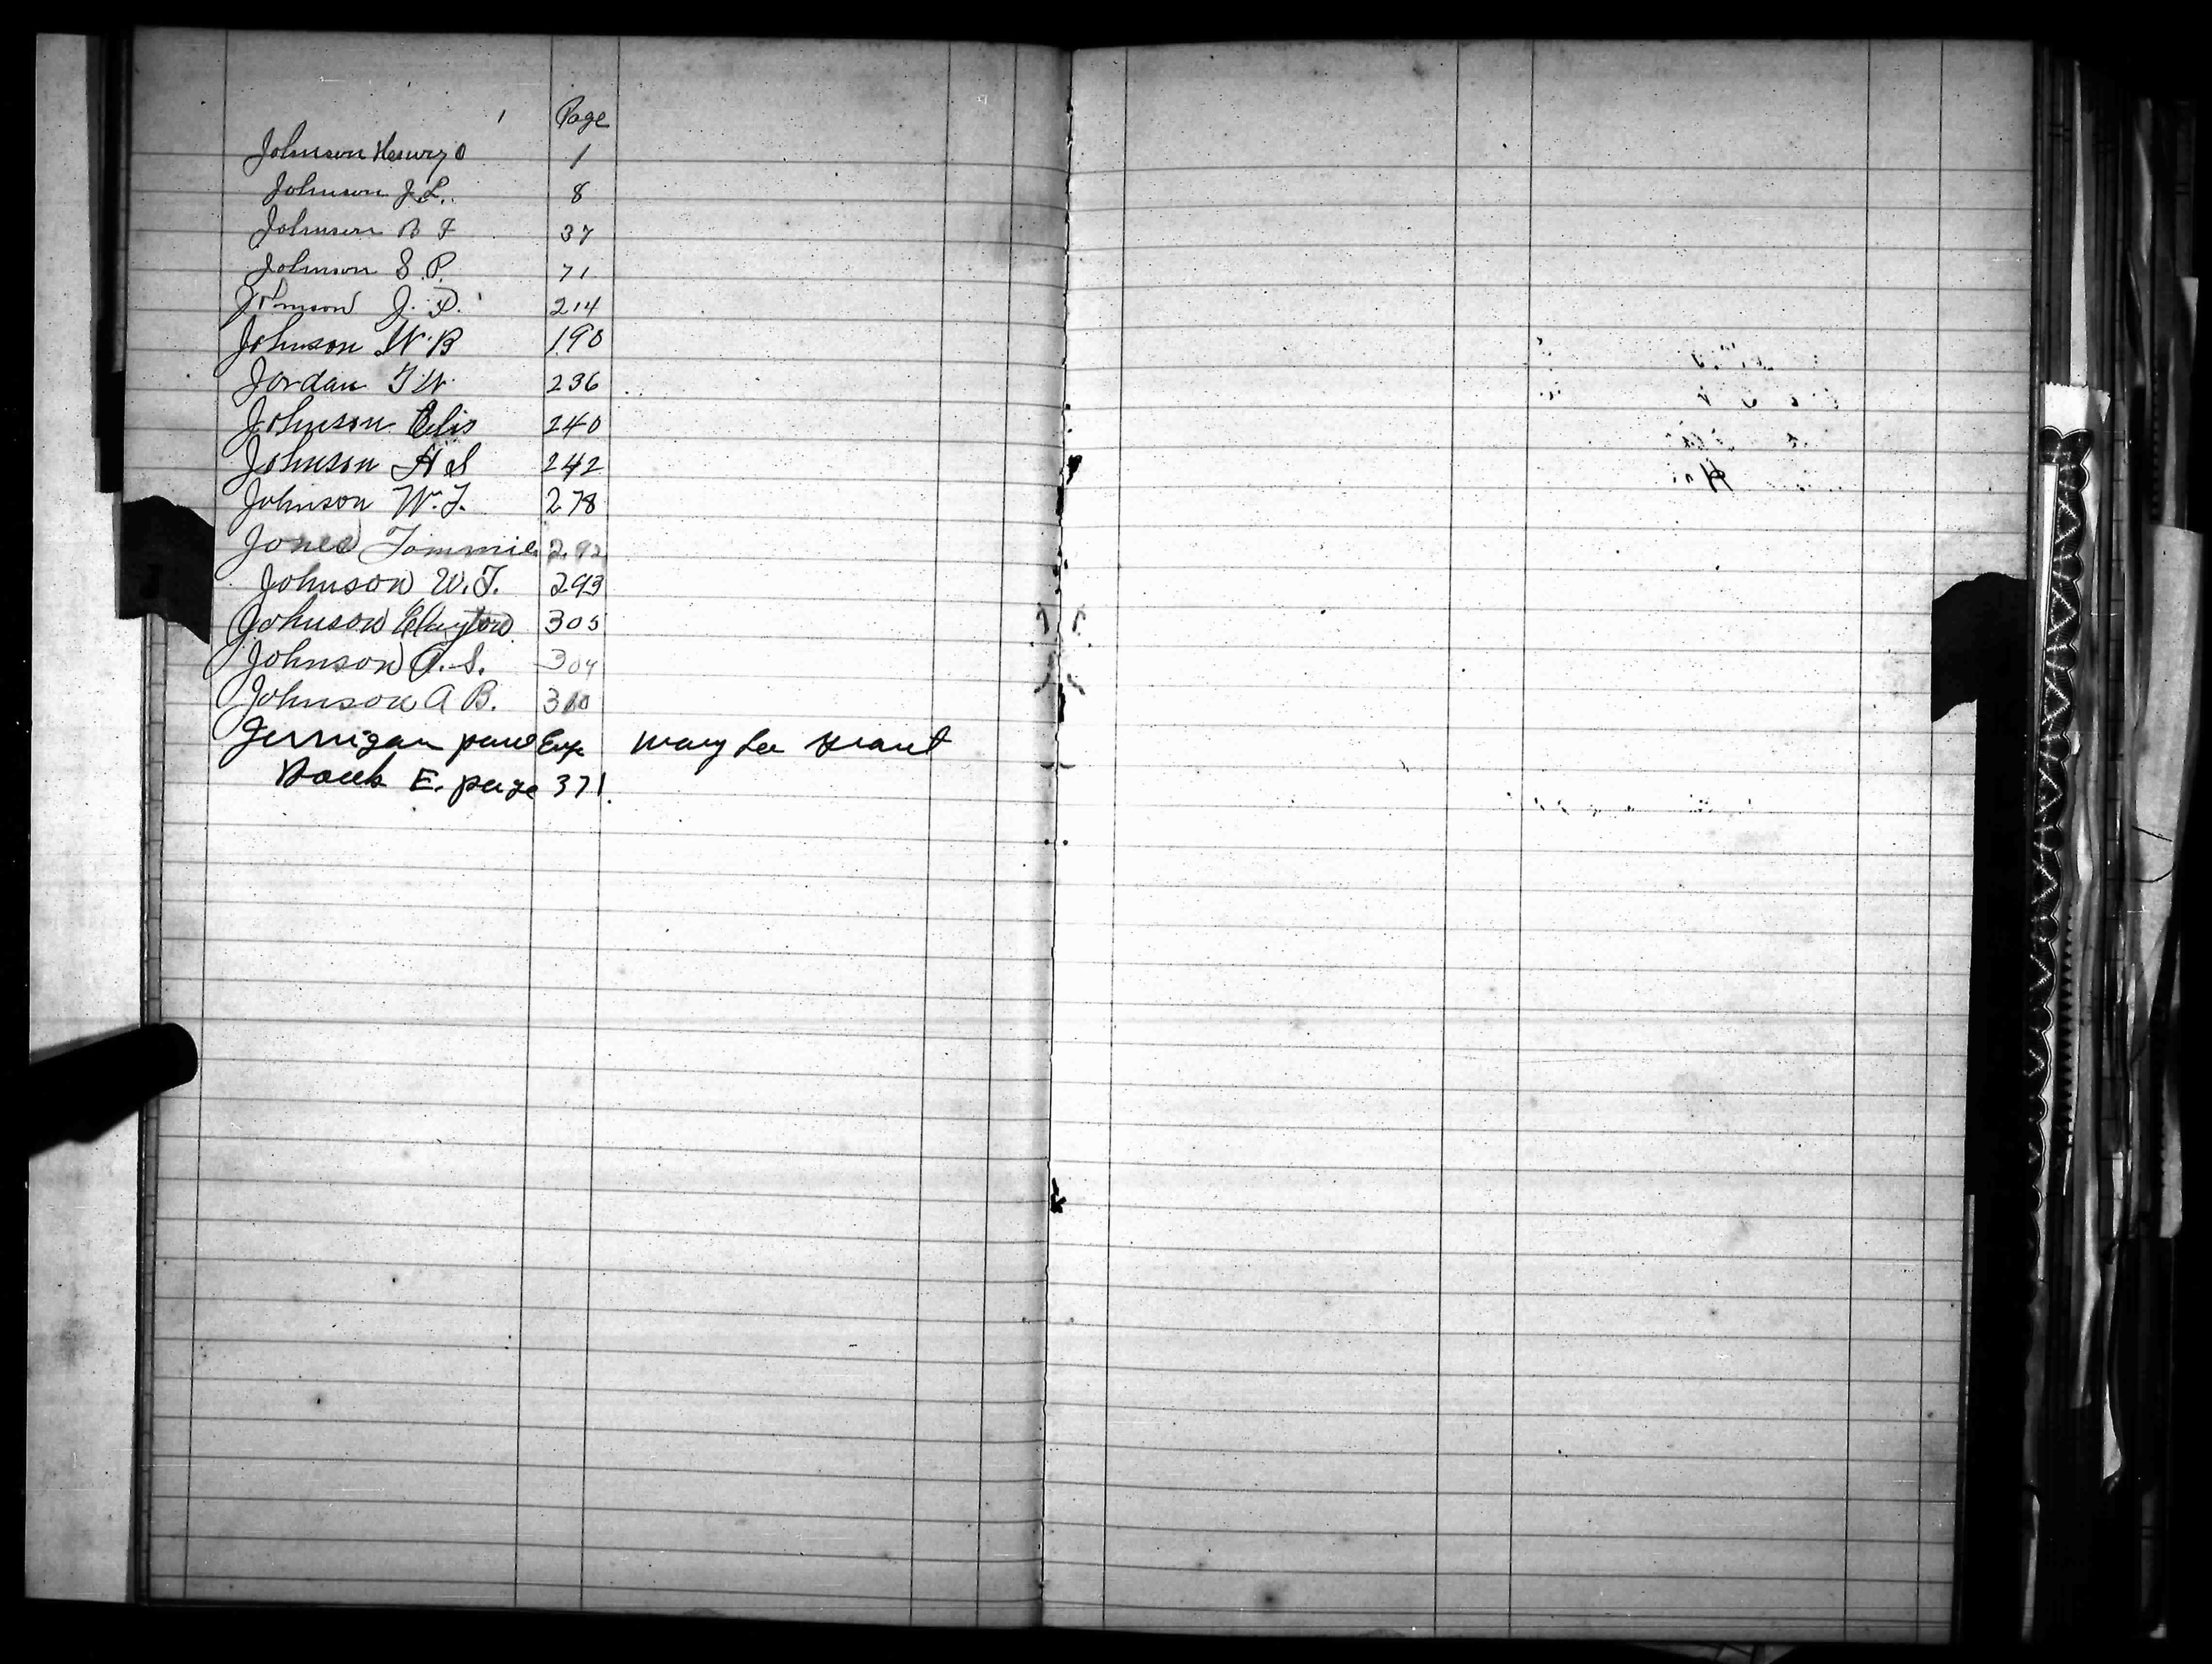 Page
Johnson Henry O 1
Johnson J. L. 8
Johnson B F 37
Johnson S. P. 71
Johnson J. D. 214
Johnson W. B 190
Jordan T. W. 236
Johnson 240
Johnson H S 242
Johnson W. T. 278
Jones Tommie 292
Johnson W. T. 293
Johnson Clayton 305
Johnson A. S. 304
Johnson A B. 310
Jernigan paul Mary Lee Grant
Book E. page 371.